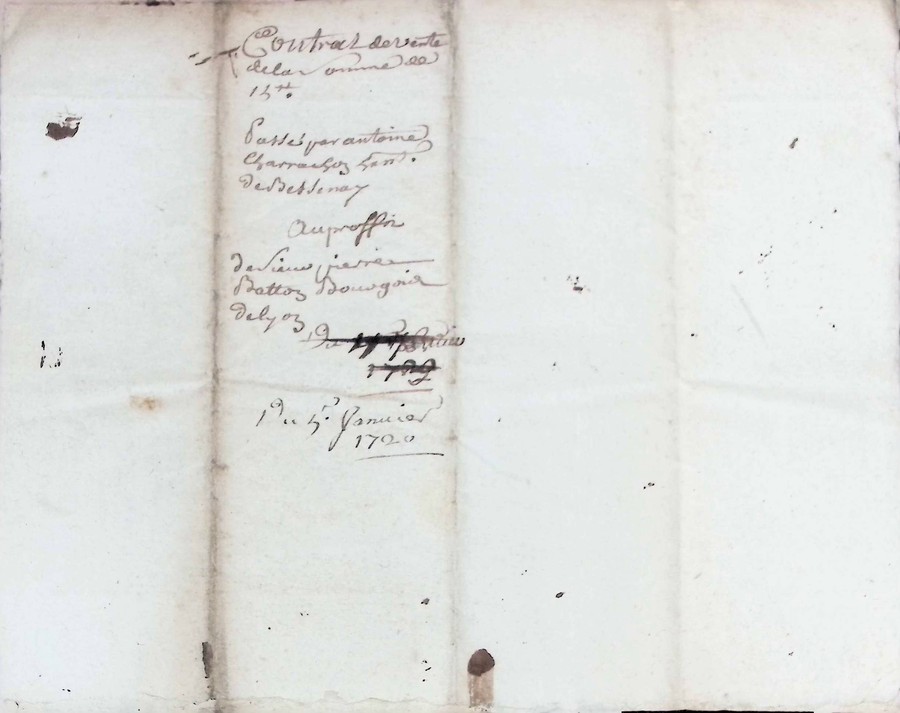 Contrat de vente
de la Somme de
15ᵗᵗ.
Passé par antoine
Charrachon hant.
de Bessenay
Au proffit
de Sieur pierre
Batton Bourgois
de lyon
Du
1729
Du 5ᵉ. Janvier
1720